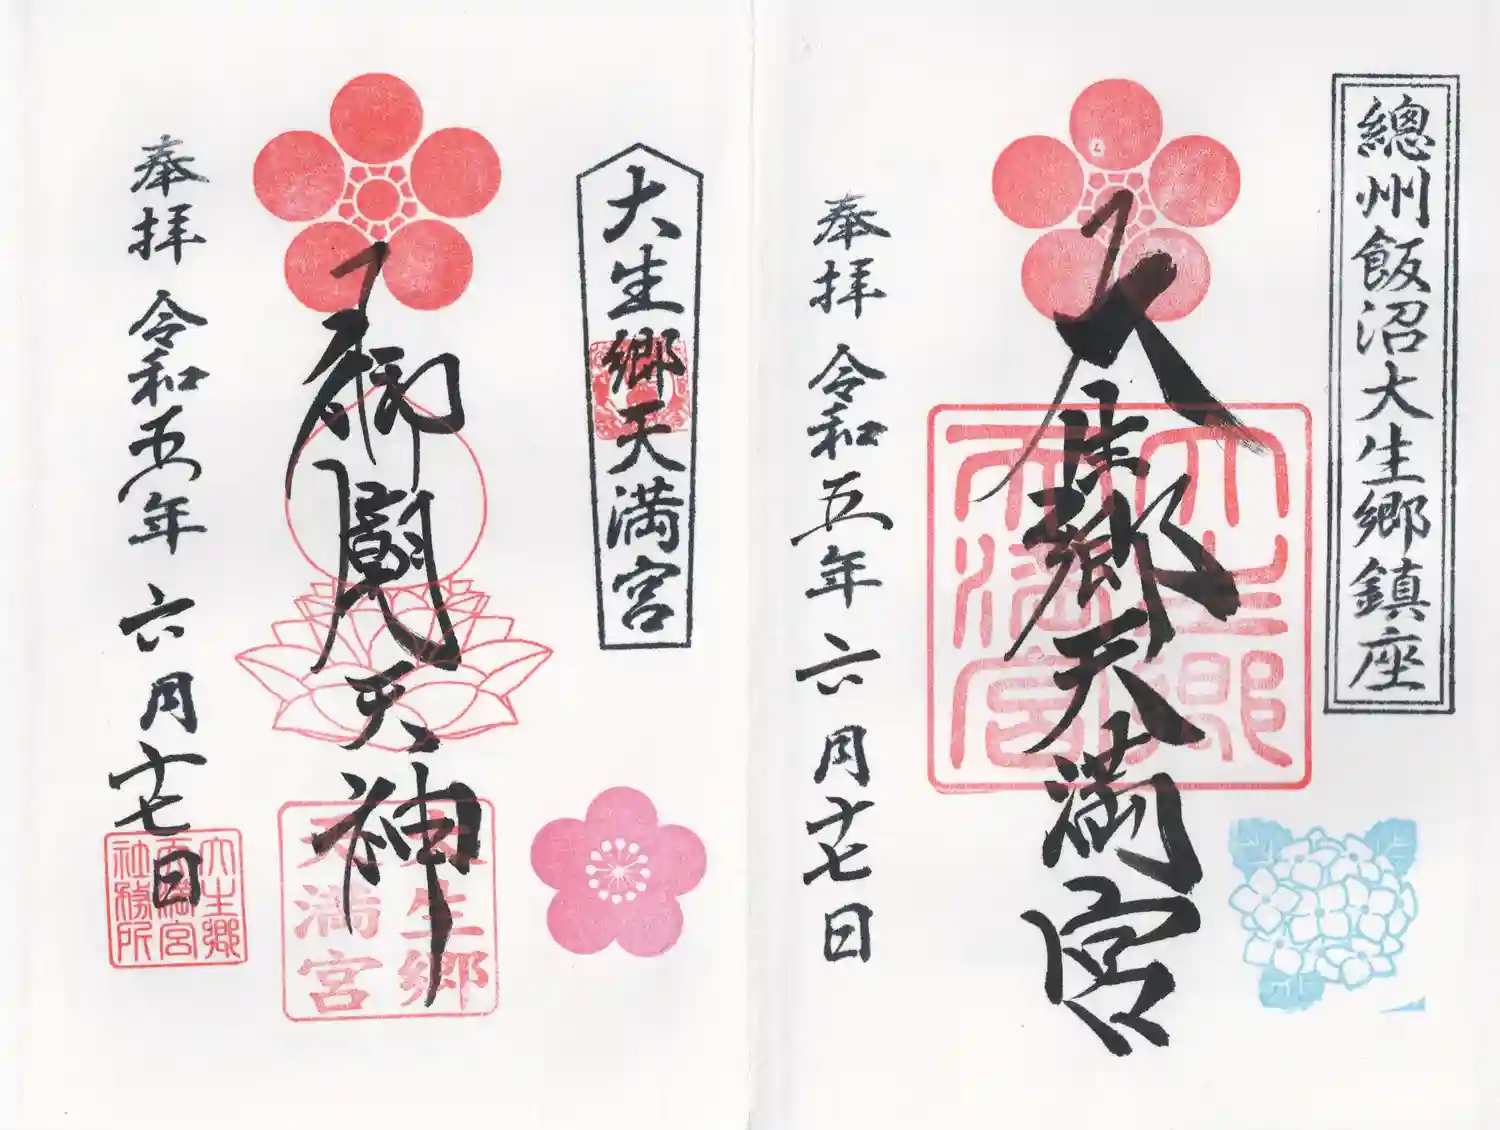 總州飯沼大生郷鎮座
大生郷天満宮
大生郷天満宮
奉拝 令和五年六月十七日
大生郷天満宮
御廟天神
大生郷天満宮
奉拝 令和五年六月十七日
大生郷
天満宮
社務所